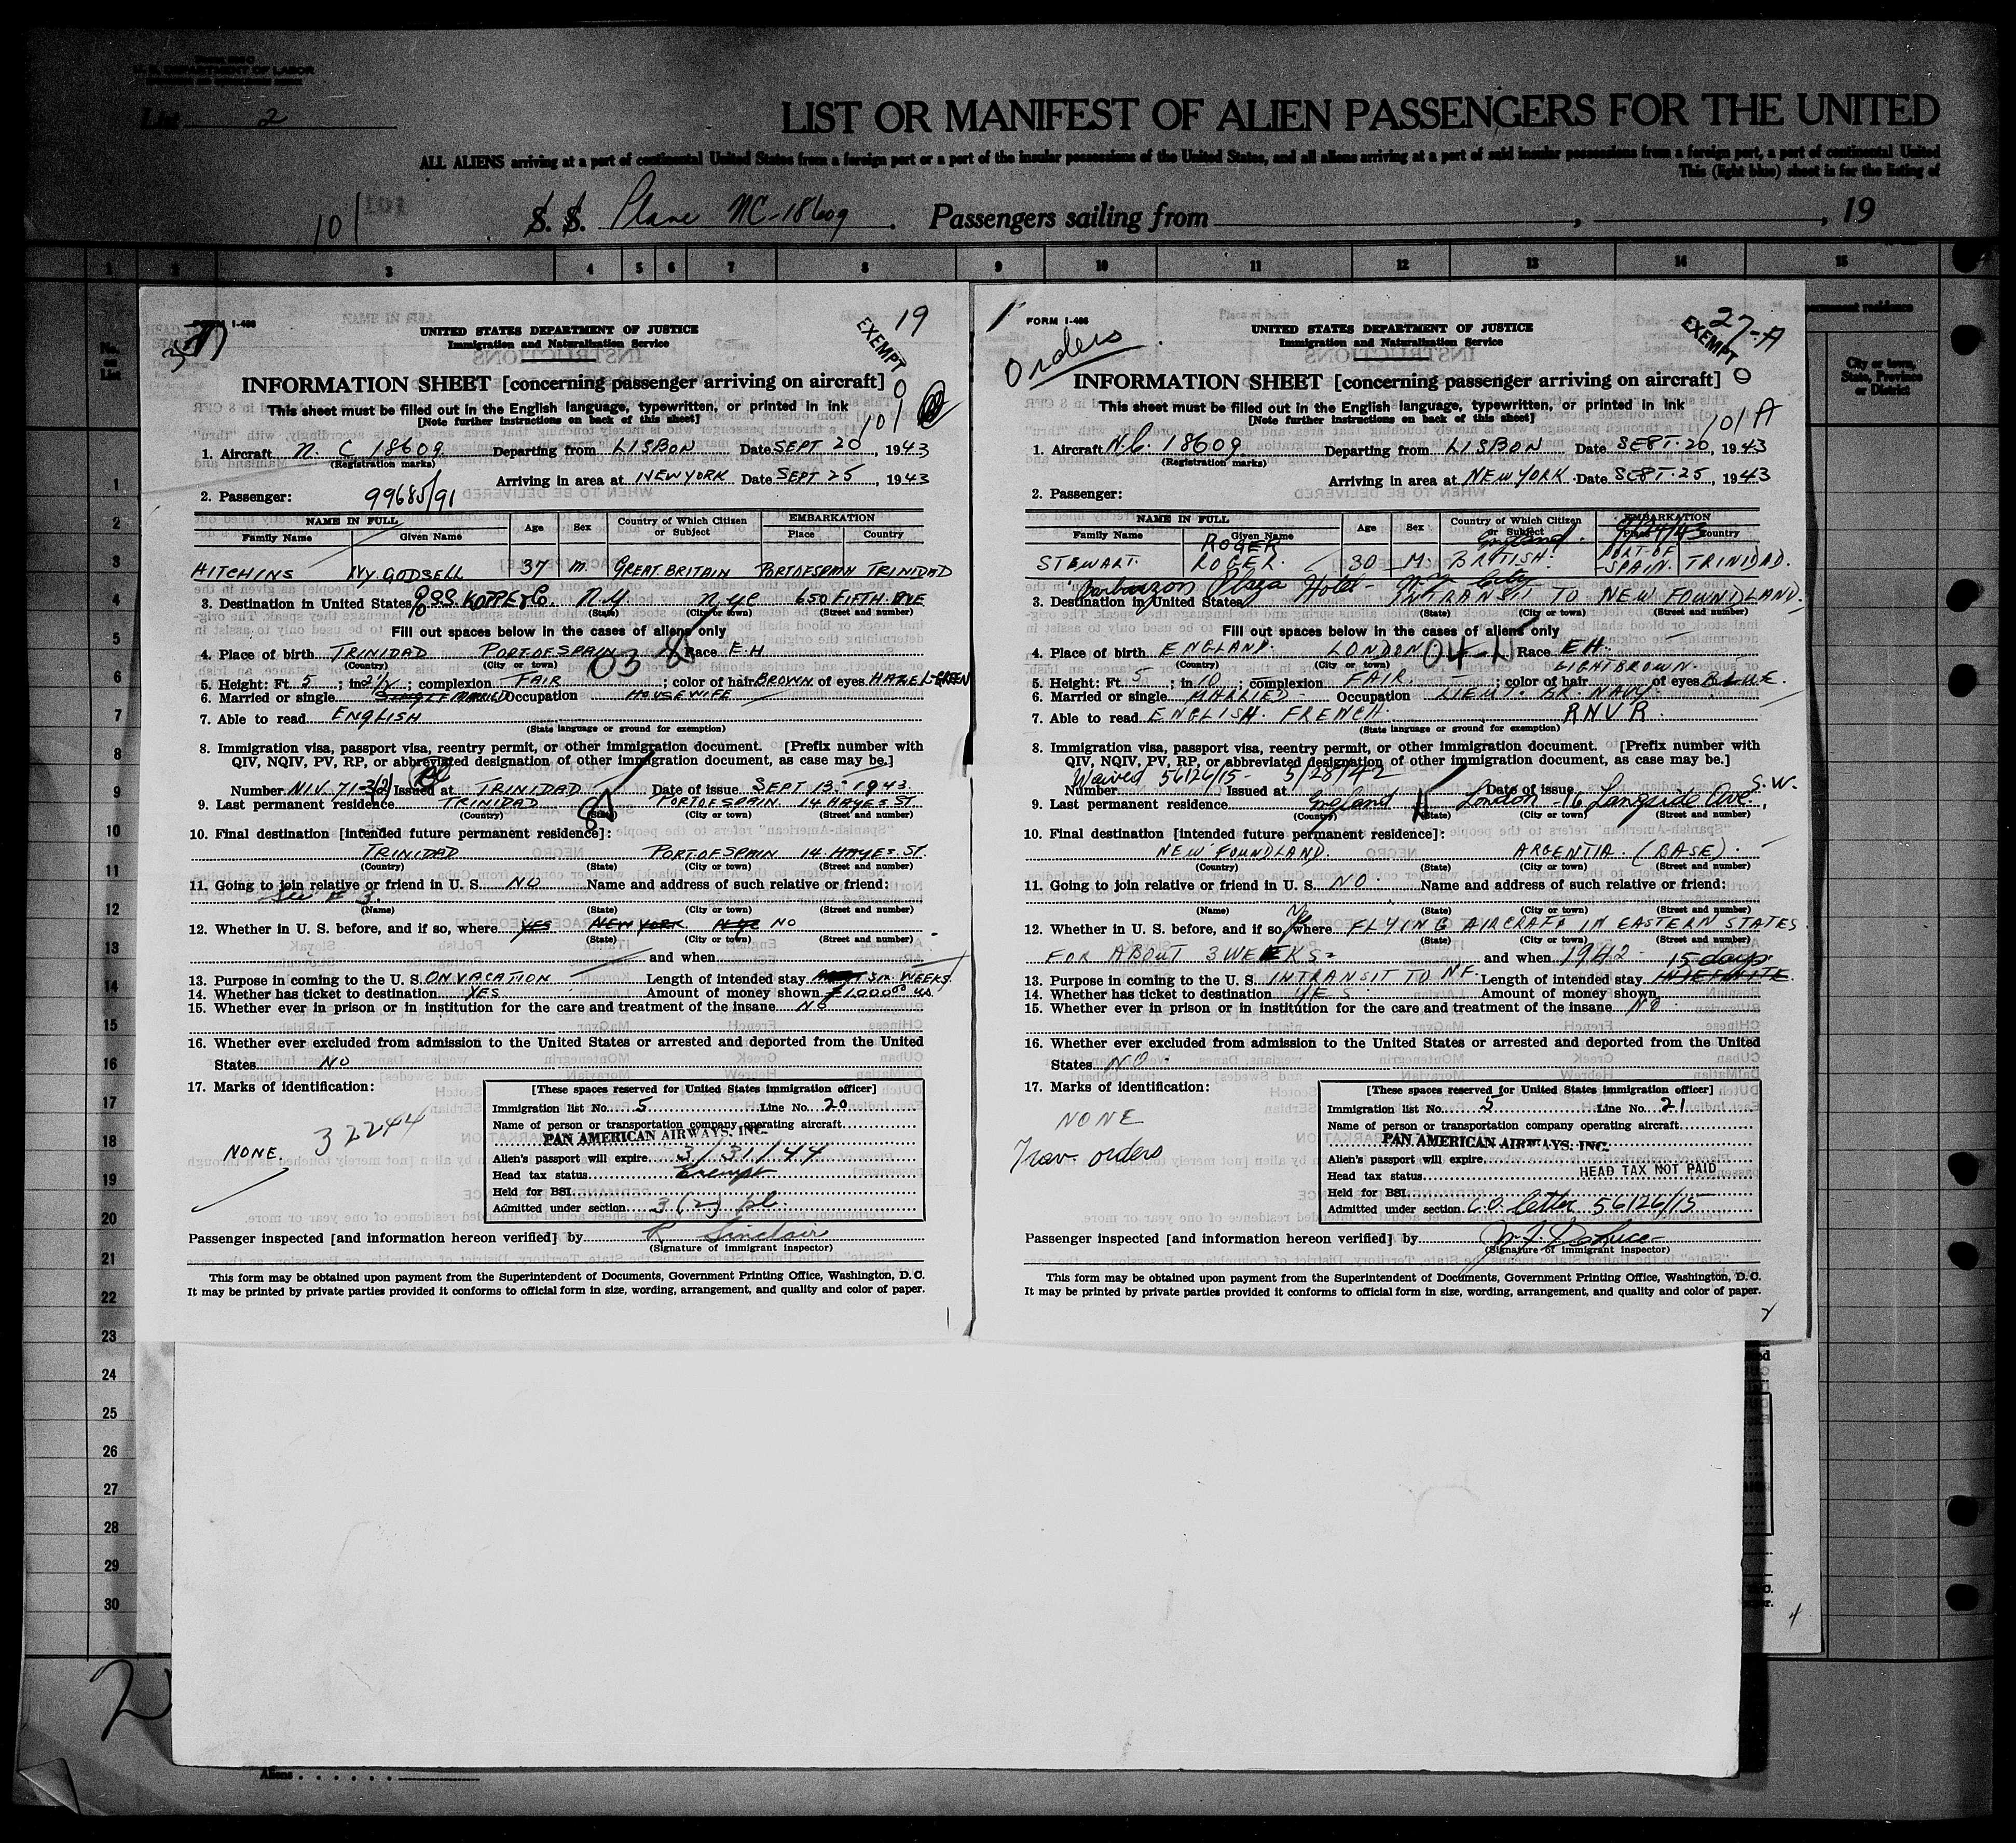 U. S. DEPARTMENT OF LABOR
List 2
LIST OR MANIFEST OF ALIEN PASSENGERS FOR THE UNITED
ALL ALIENS arriving at a port of continental United States from a foreign port or a port of the insular possessions of the United States, and all aliens arriving at a port of said insular possessions from a foreign port, a port of continental United
This (light blue) sheet is for the listing of
101
S. S. Plane NC-18609 Passengers sailing from , , 19
1 2 3 4 5 6 7 8 9 10 11 12 13 14 15
No. on List
permanent residence
City or town, State, Province or District
1
2
3
4
5
6
7
8
9
10
11
12
13
14
15
16
17
18
19
20
21
22
23
24
25
26
27
28
29
30
FORM I-466
19
UNITED STATES DEPARTMENT OF JUSTICE
Immigration and Naturalization Service
EXEMPT
INFORMATION SHEET [concerning passenger arriving on aircraft]
This sheet must be filled out in the English language, typewritten, or printed in ink
[Note further instructions on back of this sheet]
101
1. Aircraft N. C 18609 Departing from LISBON Date SEPT 20, 1943
(Registration marks)
Arriving in area at NEW YORK Date SEPT 25, 1943
2. Passenger: 99685/91
NAME IN FULL Age Sex Country of Which Citizen or Subject EMBARKATION
Family Name Given Name Place Country
HITCHINS IVY. GODSELL 37 M. GREAT. BRITAIN PORT OF SPAIN TRINIDAD
3. Destination in United States KOPPE & Co. N.Y. NYC 650 FIFTH. AVE
(State) (City or town) (Street and number)
Fill out spaces below in the cases of aliens only
4. Place of birth TRINIDAD PORT OF SPAIN Race E.H
03
(Country) (City or town)
5. Height: Ft. 5 ; in. 2½ ; complexion FAIR ; color of hair BROWN of eyes HAZEL-GREEN
6. Married or single SINGLE MARRIED Occupation HOUSEWIFE
7. Able to read ENGLISH
(State language or ground for exemption)
8. Immigration visa, passport visa, reentry permit, or other immigration document. [Prefix number with
QIV, NQIV, PV, RP, or abbreviated designation of other immigration document, as case may be.]
Number NIV. 71-3(2) Issued at TRINIDAD Date of issue SEPT 13. 1943.
9. Last permanent residence TRINIDAD PORT OF SPAIN 14 HAYES ST
(Country) (State) (City or town) (Street and number)
10. Final destination [intended future permanent residence]:
TRINIDAD PORT OF SPAIN 14. HAYES. ST.
(Country) (State) (City or town) (Street and number)
11. Going to join relative or friend in U. S. NO Name and address of such relative or friend:
See # 3.
(Name) (State) (City or town) (Street and number)
12. Whether in U. S. before, and if so, where YES NEW YORK NYC NO
(State) (City or town) (Street and number)
and when
13. Purpose in coming to the U. S. ON VACATION Length of intended stay SIX WEEKS.
14. Whether has ticket to destination YES Amount of money shown $1000.00 US.
15. Whether ever in prison or in institution for the care and treatment of the insane NO
16. Whether ever excluded from admission to the United States or arrested and deported from the United
States NO
17. Marks of identification:
NONE 32244
[These spaces reserved for United States immigration officer]
Immigration list No. 5 Line No. 20
Name of person or transportation company operating aircraft
PAN AMERICAN AIRWAYS, INC.
Alien's passport will expire 3/31/44
Head tax status Exempt
Held for BSI
Admitted under section 3(2) pl
Passenger inspected [and information hereon verified] by R Sinclair
(Signature of immigrant inspector)
This form may be obtained upon payment from the Superintendent of Documents, Government Printing Office, Washington, D. C.
It may be printed by private parties provided it conforms to official form in size, wording, arrangement, and quality and color of paper.
FORM I-466
Orders
27-A
UNITED STATES DEPARTMENT OF JUSTICE
Immigration and Naturalization Service
EXEMPT
INFORMATION SHEET [concerning passenger arriving on aircraft]
This sheet must be filled out in the English language, typewritten, or printed in ink
[Note further instructions on back of this sheet]
101 A
1. Aircraft N.C. 18609 Departing from LISBON Date SEPT. 20, 1943
(Registration marks)
Arriving in area at NEW YORK Date SEPT. 25, 1943
2. Passenger:
NAME IN FULL Age Sex Country of Which Citizen or Subject EMBARKATION
Family Name Given Name Place Country
ROGER England 9/24/43
STEWART. ROGER. 30 M. BRITISH. PORT-OF SPAIN. TRINIDAD.
Barbizon Plaza Hotel - N.Y. City
3. Destination in United States INTRANSIT TO NEW FOUNDLAND.
(State) (City or town) (Street and number)
Fill out spaces below in the cases of aliens only
4. Place of birth ENGLAND. LONDON Race EH.
04-
(Country) (City or town)
LIGHT BROWN.
5. Height: Ft. 5 ; in. 10 ; complexion FAIR. ; color of hair of eyes BLUE.
6. Married or single MARRIED Occupation LIEUT. BR. NAVY.
7. Able to read ENGLISH. FRENCH. RNVR.
(State language or ground for exemption)
8. Immigration visa, passport visa, reentry permit, or other immigration document. [Prefix number with
QIV, NQIV, PV, RP, or abbreviated designation of other immigration document, as case may be.]
Waived 56126/15- 5/28/42
Number Issued at Date of issue
9. Last permanent residence England London - 16 Langside Ave S.W.
(Country) (State) (City or town) (Street and number)
10. Final destination [intended future permanent residence]:
NEW FOUNDLAND. ARGENTIA. (BASE).
(Country) (State) (City or town) (Street and number)
11. Going to join relative or friend in U. S. NO. Name and address of such relative or friend:
(Name) (State) (City or town) (Street and number)
12. Whether in U. S. before, and if so, where FLYING AIRCRAFT IN EASTERN STATES
(State) (City or town) (Street and number)
FOR ABOUT 3 WEEKS. and when 1942
15 days
13. Purpose in coming to the U. S. INTRANSIT TO NF. Length of intended stay INDEFINITE.
14. Whether has ticket to destination YES Amount of money shown
15. Whether ever in prison or in institution for the care and treatment of the insane NO
16. Whether ever excluded from admission to the United States or arrested and deported from the United
States NO.
17. Marks of identification:
NONE
Trav orders
[These spaces reserved for United States immigration officer]
Immigration list No. 5 Line No. 21
Name of person or transportation company operating aircraft
PAN AMERICAN AIRWAYS, INC.
Alien's passport will expire
HEAD TAX NOT PAID
Head tax status
Held for BSI
Admitted under section C.O. letter 56126/15
Passenger inspected [and information hereon verified] by
(Signature of immigrant inspector)
This form may be obtained upon payment from the Superintendent of Documents, Government Printing Office, Washington, D. C.
It may be printed by private parties provided it conforms to official form in size, wording, arrangement, and quality and color of paper.
2
Aliens